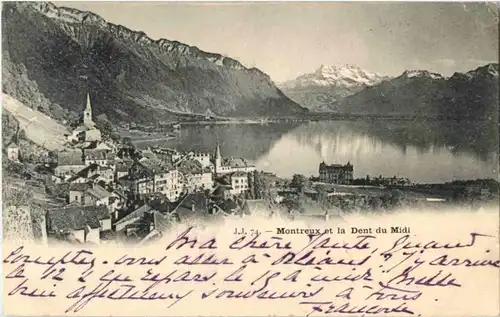 J.J. 74. – Montreux et la Dent du Midi
Ma chère tante Quand
comptez-vous aller à Orléans? J'y arrive
le 12 et repars le 15 à midi. Mille
affectueux souvenirs à tous.
Françoise